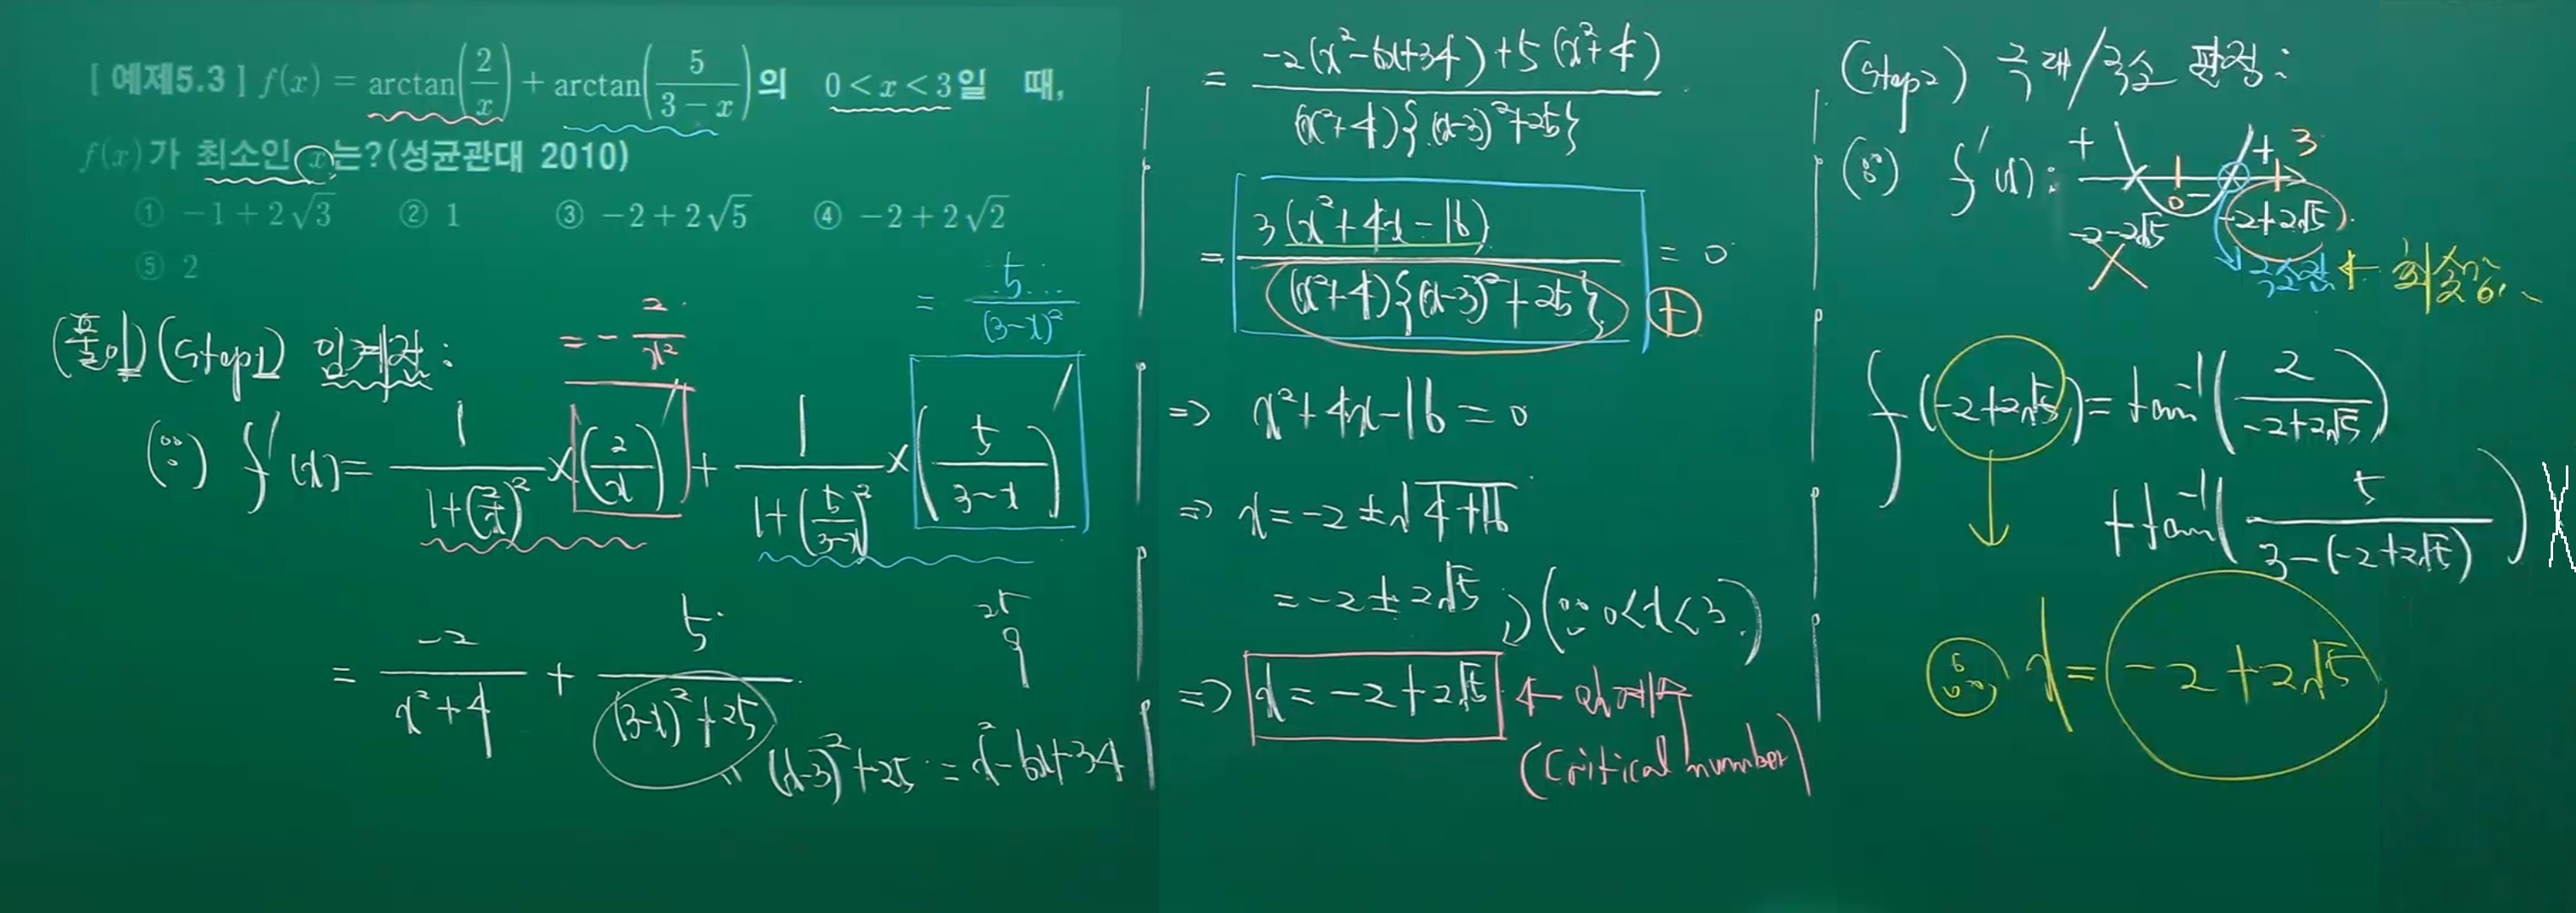 [ 예제5.3 ] f(x) = arctan(2/x) + arctan(5/(3 − x))의 0 < x < 3일 때,
f(x)가 최소인 x는?(성균관대 2010)
① −1 + 2√3 ② 1 ③ −2 + 2√5 ④ −2 + 2√2
⑤ 2
(풀이) (Step1) 임계점:
= − 2/x²
= 5.../(3−x)²
(∵) f'(x) = 1/(1+(2/x)²) × (2/x)' + 1/(1+(5/(3−x))²) × (5/(3−x))'
= −2/(x²+4) + 5/((3−x)²+25)
25
9
" (x−3)²+25 = x²−6x+34
= (−2(x²−6x+34)+5(x²+4))/((x²+4){(x−3)²+25})
= 3(x²+4x−16)/((x²+4){(x−3)²+25}) = 0
+
=> x²+4x−16=0
=> x = −2 ± √4+16
= −2 ± 2√5 , (∵ 0<x<3)
=> x = −2+2√5 ← 임계수
(Critical number)
(Step2) 극대/극소 판정:
(∵) f'(x): + − + 3
0
−2−2√5 −2+2√5
X 극소점 ← 최소
f(−2+2√5) = tan⁻¹(2/(−2+2√5))
+tan⁻¹(5/(3−(−2+2√5))) X
∴ x = −2+2√5